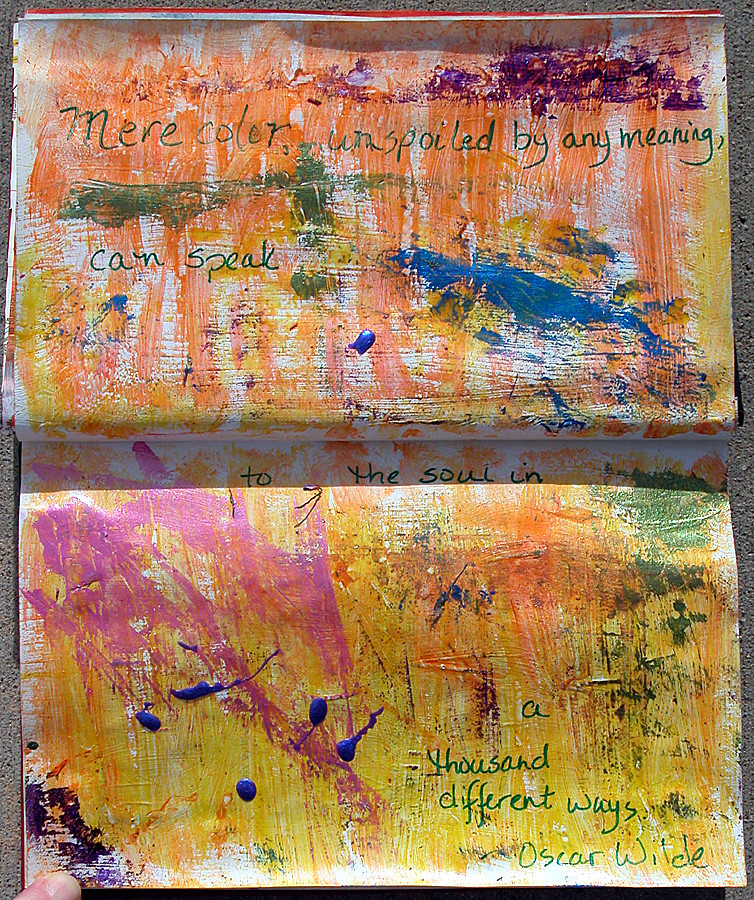 Mere color, unspoiled by any meaning,
can speak
to the soul in
a
thousand
different ways.
Oscar Wilde